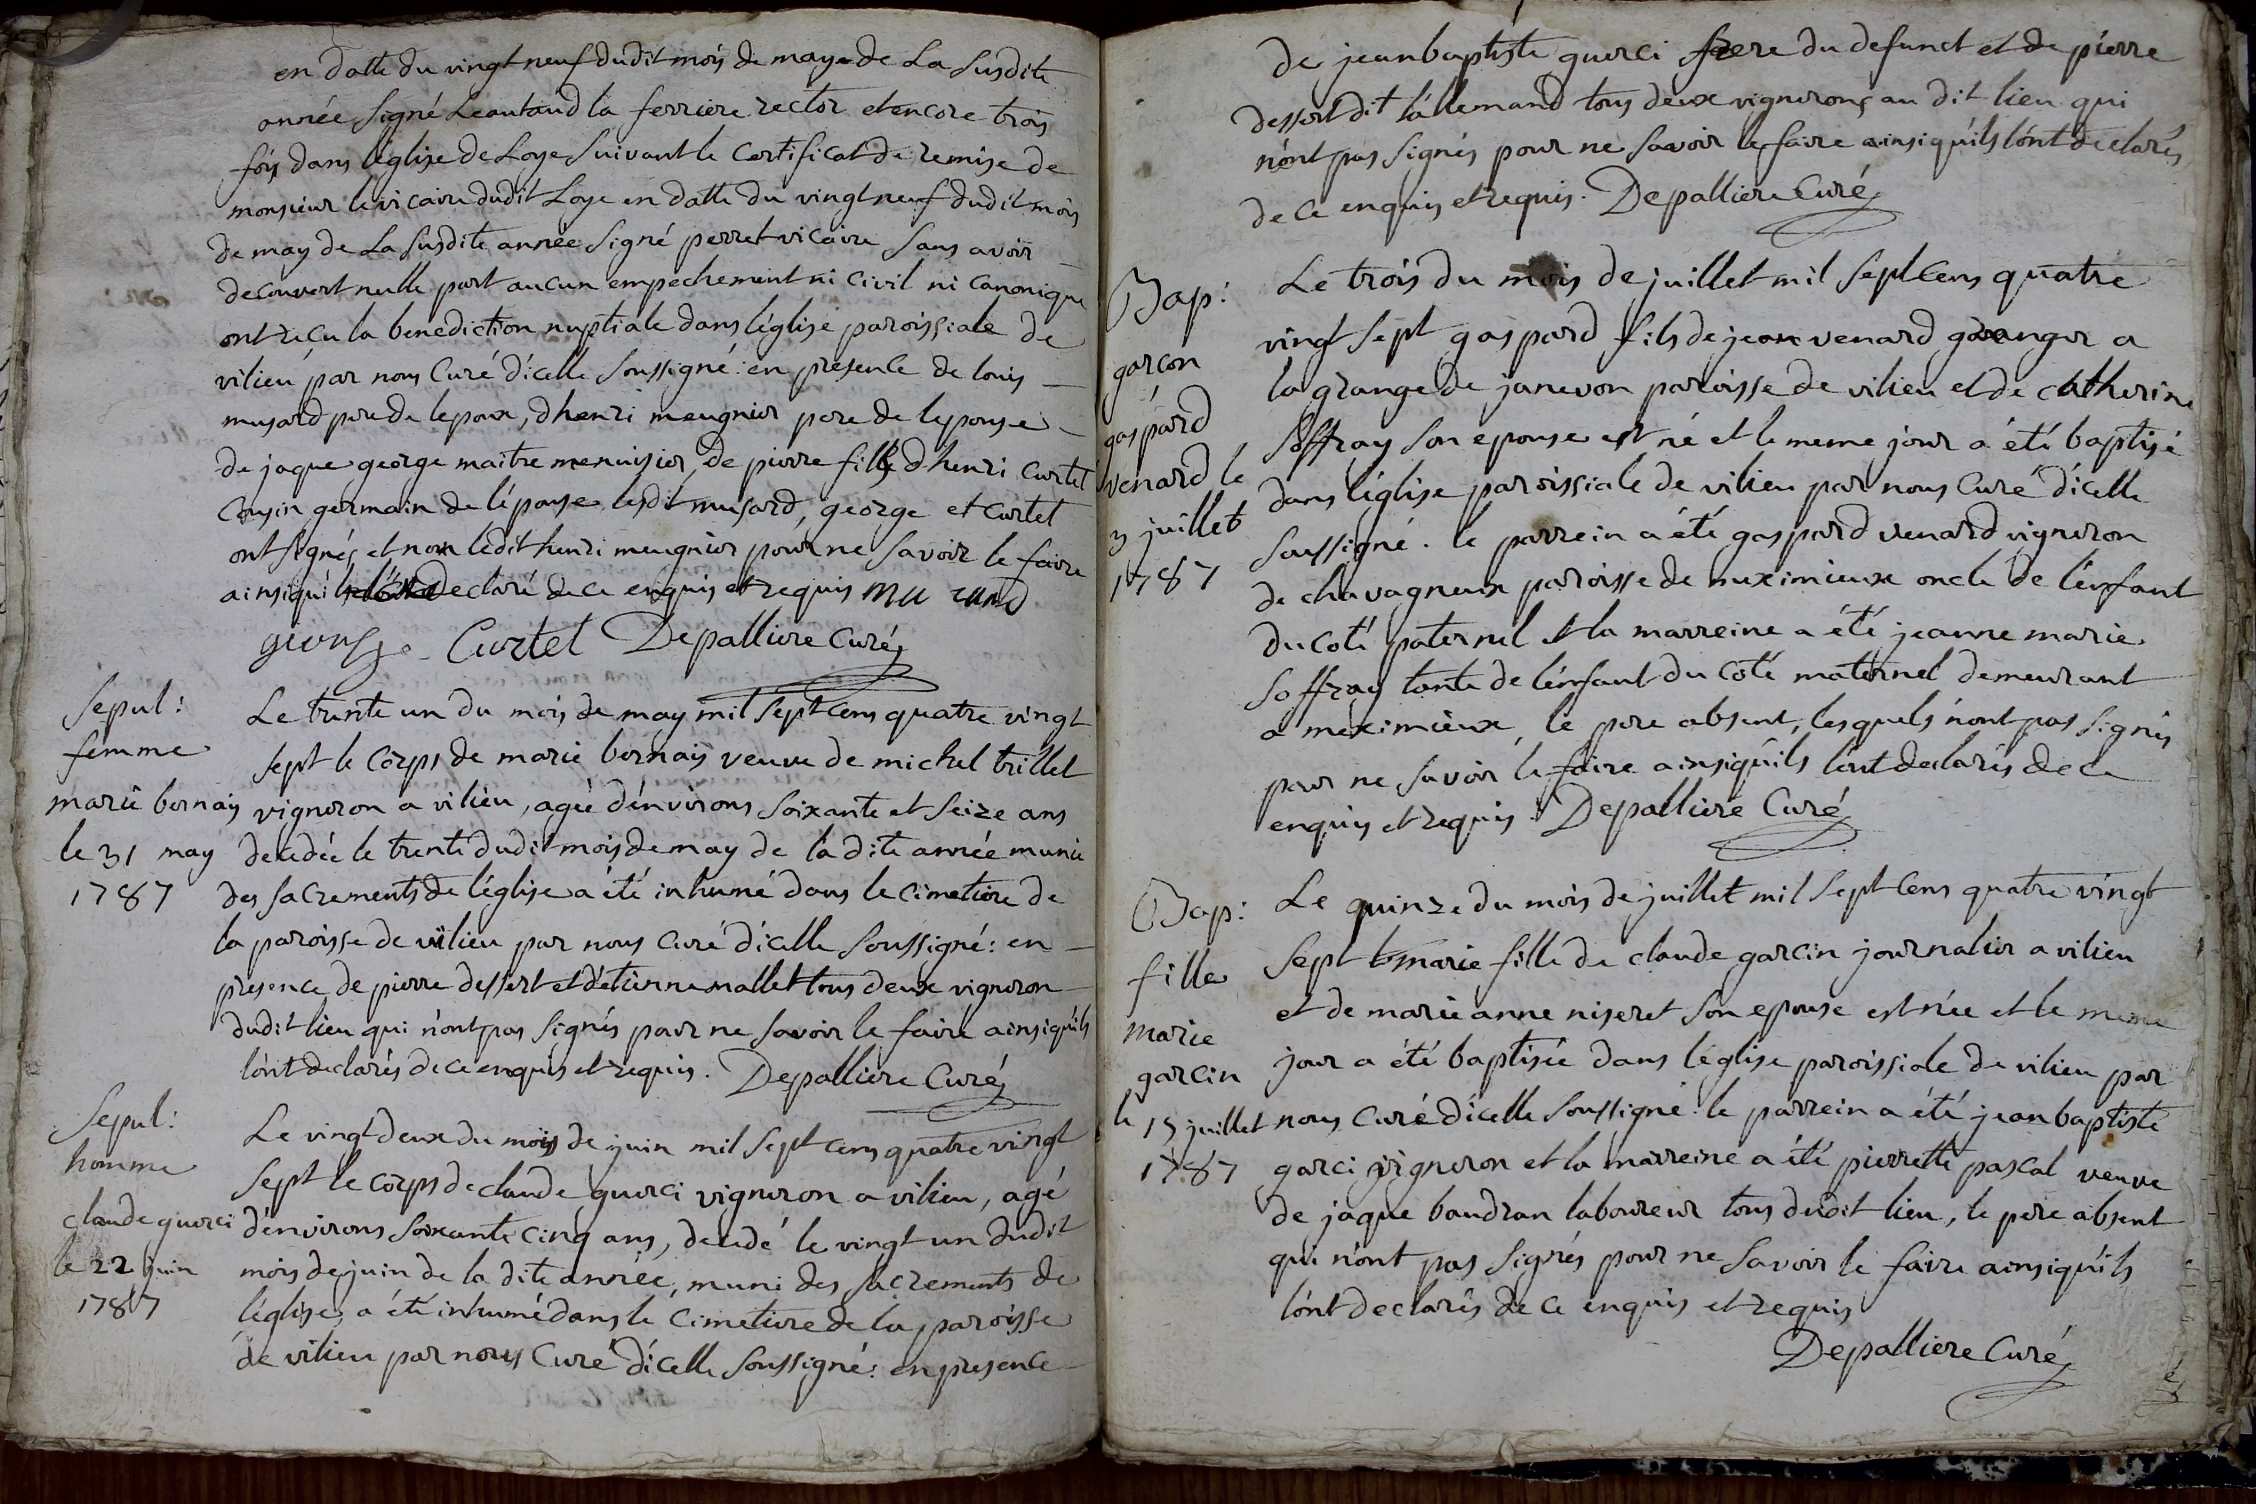 en datte du vingt neuf dudit mois de may de La susdite
année signé Leautaud la ferriere rector et encore trois
fois dans l'église de Loye suivant le certificat de remise de
monsieur le vicaire dudit Loye en datte du vingt neuf dudit mois
de may de La susdite année signé perret vicaire sans avoir
decouvert nulle part aucun empechement ni civil ni canonique
ont reçu la benediction nuptiale dans l'église paroissiale de
vilieu par nous curé d'icelle soussigné: en presence de louis
musard pere de lepoux, dhenri meugnier pere de lepouse
de jaque george maitre menuisier, de pierre fills dhenri curtet
cousin germain de l'épouse lesdit musard, george et curtet
ont signés, et non ledit henri meugnier pour ne savoir le faire
ainsi qui declaré de ce enquis et requis mu zard
george Curtet Depalliere Curé
Sepul:
femme
marie bernais
le 31 may
1787
Le trente un du mois de may mil sept cens quatre vingt
sept le corps de marie bernais veuve de michel trillet
vigneron a vilieu, agée d'environs soixante et seize ans
decedée le trente dudit mois de may de la dite année munie
des sacrements de l'église a été inhumé dans le cimetiere de
la paroisse de vilieu par nous curé d'icelle soussigné: en
presence de pierre dessert et d'etienne mallet tous deux vigneron
dudit lieu qui n'ont pas signés pour ne savoir le faire ainsi qu'ils
l'ont declarés de ce enquis et requis. Depalliere Curé
Sepul:
homme
claude guerci
le 22 juin
1787
Le vingt deux du mois de juin mil sept cens quatre vingt
sept le corps de claude guerci vigneron a vilieu, agé
d'environs soixante cinq ans, decedé le vingt un dudit
mois de juin de la dite année, muni des sacrements de
l'église, a été inhumé dans le cimetiere de la paroisse
de vilieu par nous Curé d'icelle soussigné: en presence
de jean baptiste guerci frere du defunct et de pierre
dessert dit l'allemand tous deux vignerons au dit lieu qui
n'ont pas signés pour ne savoir le faire ainsi qu'ils l'ont declarés
de ce enquis et requis. Depalliere Curé
Bap:
garcon
gaspard
venard le
3 juillet
1787
Le trois du mois de juillet mil sept cens quatre
vingt sept gaspard fils de jean venard granger a
la grange de janevon paroisse de vilieu et de catherine
soffray son epouse est né et le meme jour a été baptisé
dans l'église paroissiale de vilieu par nous Curé d'icelle
soussigné. le parrein a été gaspard venard vigneron
de chavagneux paroisse de meximieux oncle de l'enfant
du coté paternel et la marreine a été jeanne marie
soffray tante de l'enfant du coté maternel demeurant
a meximieux, le pere absent, lesquels n'ont pas signés
pour ne savoir le faire ainsi qu'ils l'ont declarés de ce
enquis et requis. Depalliere Curé
Bap:
fille
marie
garcin
le 15 juillet
1787
Le quinze du mois de juillet mil sept cens quatre vingt
sept marie fille de claude garcin journalier a vilieu
et de marie anne niseret son epouse est née et le meme
jour a été baptisée dans l'église paroissiale de vilieu par
nous Curé d'icelle soussigné. le parrein a été jean baptiste
garci vigneron et la marreine a été pierrette pascal veuve
de jaque baudran laboureur tous dudit lieu, le pere absent
qui n'ont pas signés pour ne savoir le faire ainsi qu'ils
l'ont declarés de ce enquis et requis
Depalliere Curé